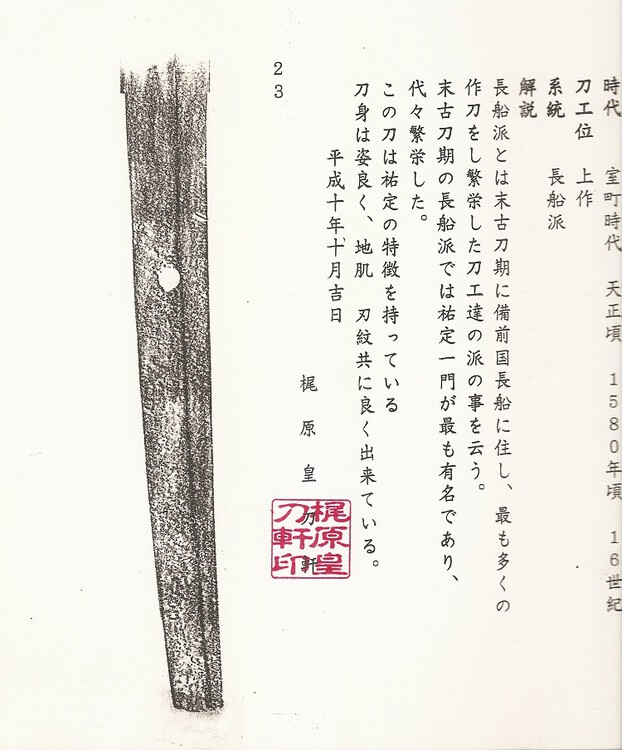 時代　室町時代　天正頃　1580年頃　16世紀
刀工位　上作
系統　長船派
解説
長船派とは末古刀期に備前国長船に住し、最も多くの
作刀をし繁栄した刀工達の派の事を云う。
末古刀期の長船派では祐定一門が最も有名であり、
代々繁栄した。
この刀は祐定の特徴を持っている
刀身は姿良く、地肌　刃紋共に良く出来ている。
平成十年十月吉日
梶原皇刀軒
梶原皇
刀軒印
23